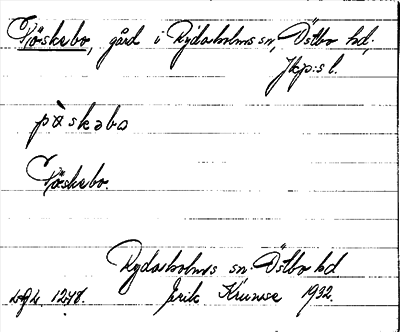 Pöskebo, gård i Rydaholms sn, Östbo hd,
Jkp:s l.
pö̀skəbo
Pöskebo.
Rydaholms sn. Östbo hd
Erik Kruuse 1932.